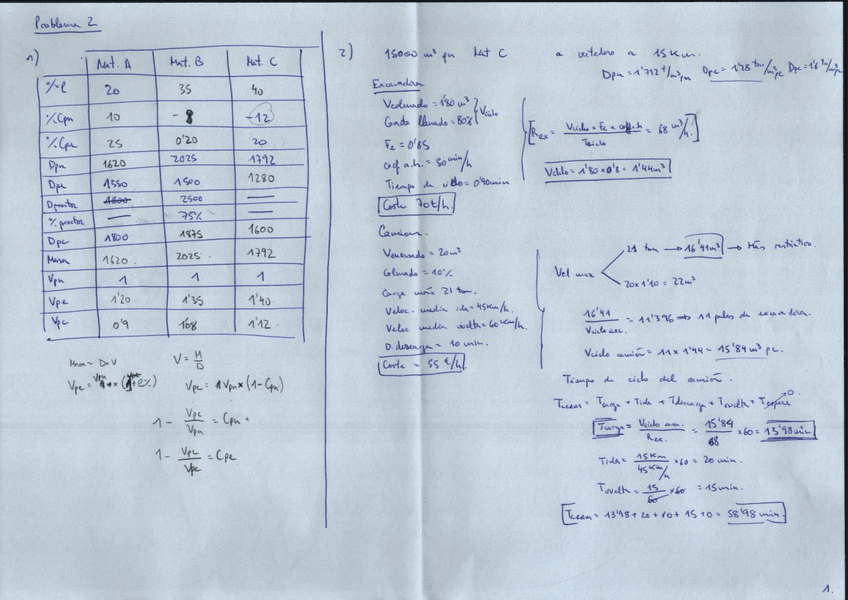 Problema 2
1)
Mat. A Mat. B Mat. C
%e 20 35 40
%Cpn 10 -8 -12
%Cpe 25 0'20 20
Dpn 1620 2025 1792
Dpe 1350 1500 1280
Dproctor 1800 2500 —
% proctor — 75% —
Dpc 1800 1875 1600
Masa 1620 2025 1792
Vpn 1 1 1
Vpe 1'20 1'35 1'40
Vpc 0'9 1'08 1'12
Masa = D x V
V = M/D
Vpe = Vpn x (1+e%)
Vpc = Vpn x (1 - Cpn)
1 - Vpc/Vpn = Cpn
1 - Vpc/Vpe = Cpe
2) 15000 m³ pn Mat C a vertedero a 15 Km.
Dpn = 1'792 t/m³pn Dpe = 1'28 tm/m³pe Dpc = 1'6 tn/m³pc
Excavadora
Vcolmado = 1'80 m³
Grado llenado = 80% } Vciclo
Fe = 0'85
coef a.h. = 50 min/h
Tiempo de ciclo = 0'90 min
Coste 70 €/h.
Rex = Vciclo x Fe x coef a.h / Tciclo = 68 m³/h.
Vciclo = 1'80 x 0'8 = 1'44 m³
Camion.
Venrasado = 20 m³
Colmado = 10%
Carga máx 21 ton.
Veloc. media ida = 45 Km/h.
Veloc media vuelta = 60 Km/h.
D. descarga = 10 min.
Coste = 55 €/h
Vol max
21 ton → 16'41 m³ → Más restrictivo.
20 x 1'10 = 22 m³
16'41 / Vciclo exc. = 11'396 ⇒ 11 palas de excavadora.
Vciclo camión = 11 x 1'44 = 15'84 m³ pe.
Tiempo de ciclo del camión.
Tcam = Tcarga + Tida + Tdescarga + Tvuelta + Tespera 0
Tcarga = Vciclo cam. / Rex. = 15'84 / 68 x 60 = 13'98 min
Tida = 15 Km / 45 Km/h x 60 = 20 min.
Tvuelta = 15 / 60 x 60 = 15 min.
Tcam = 13'98 + 20 + 10 + 15 + 0 = 58'98 min.
1.